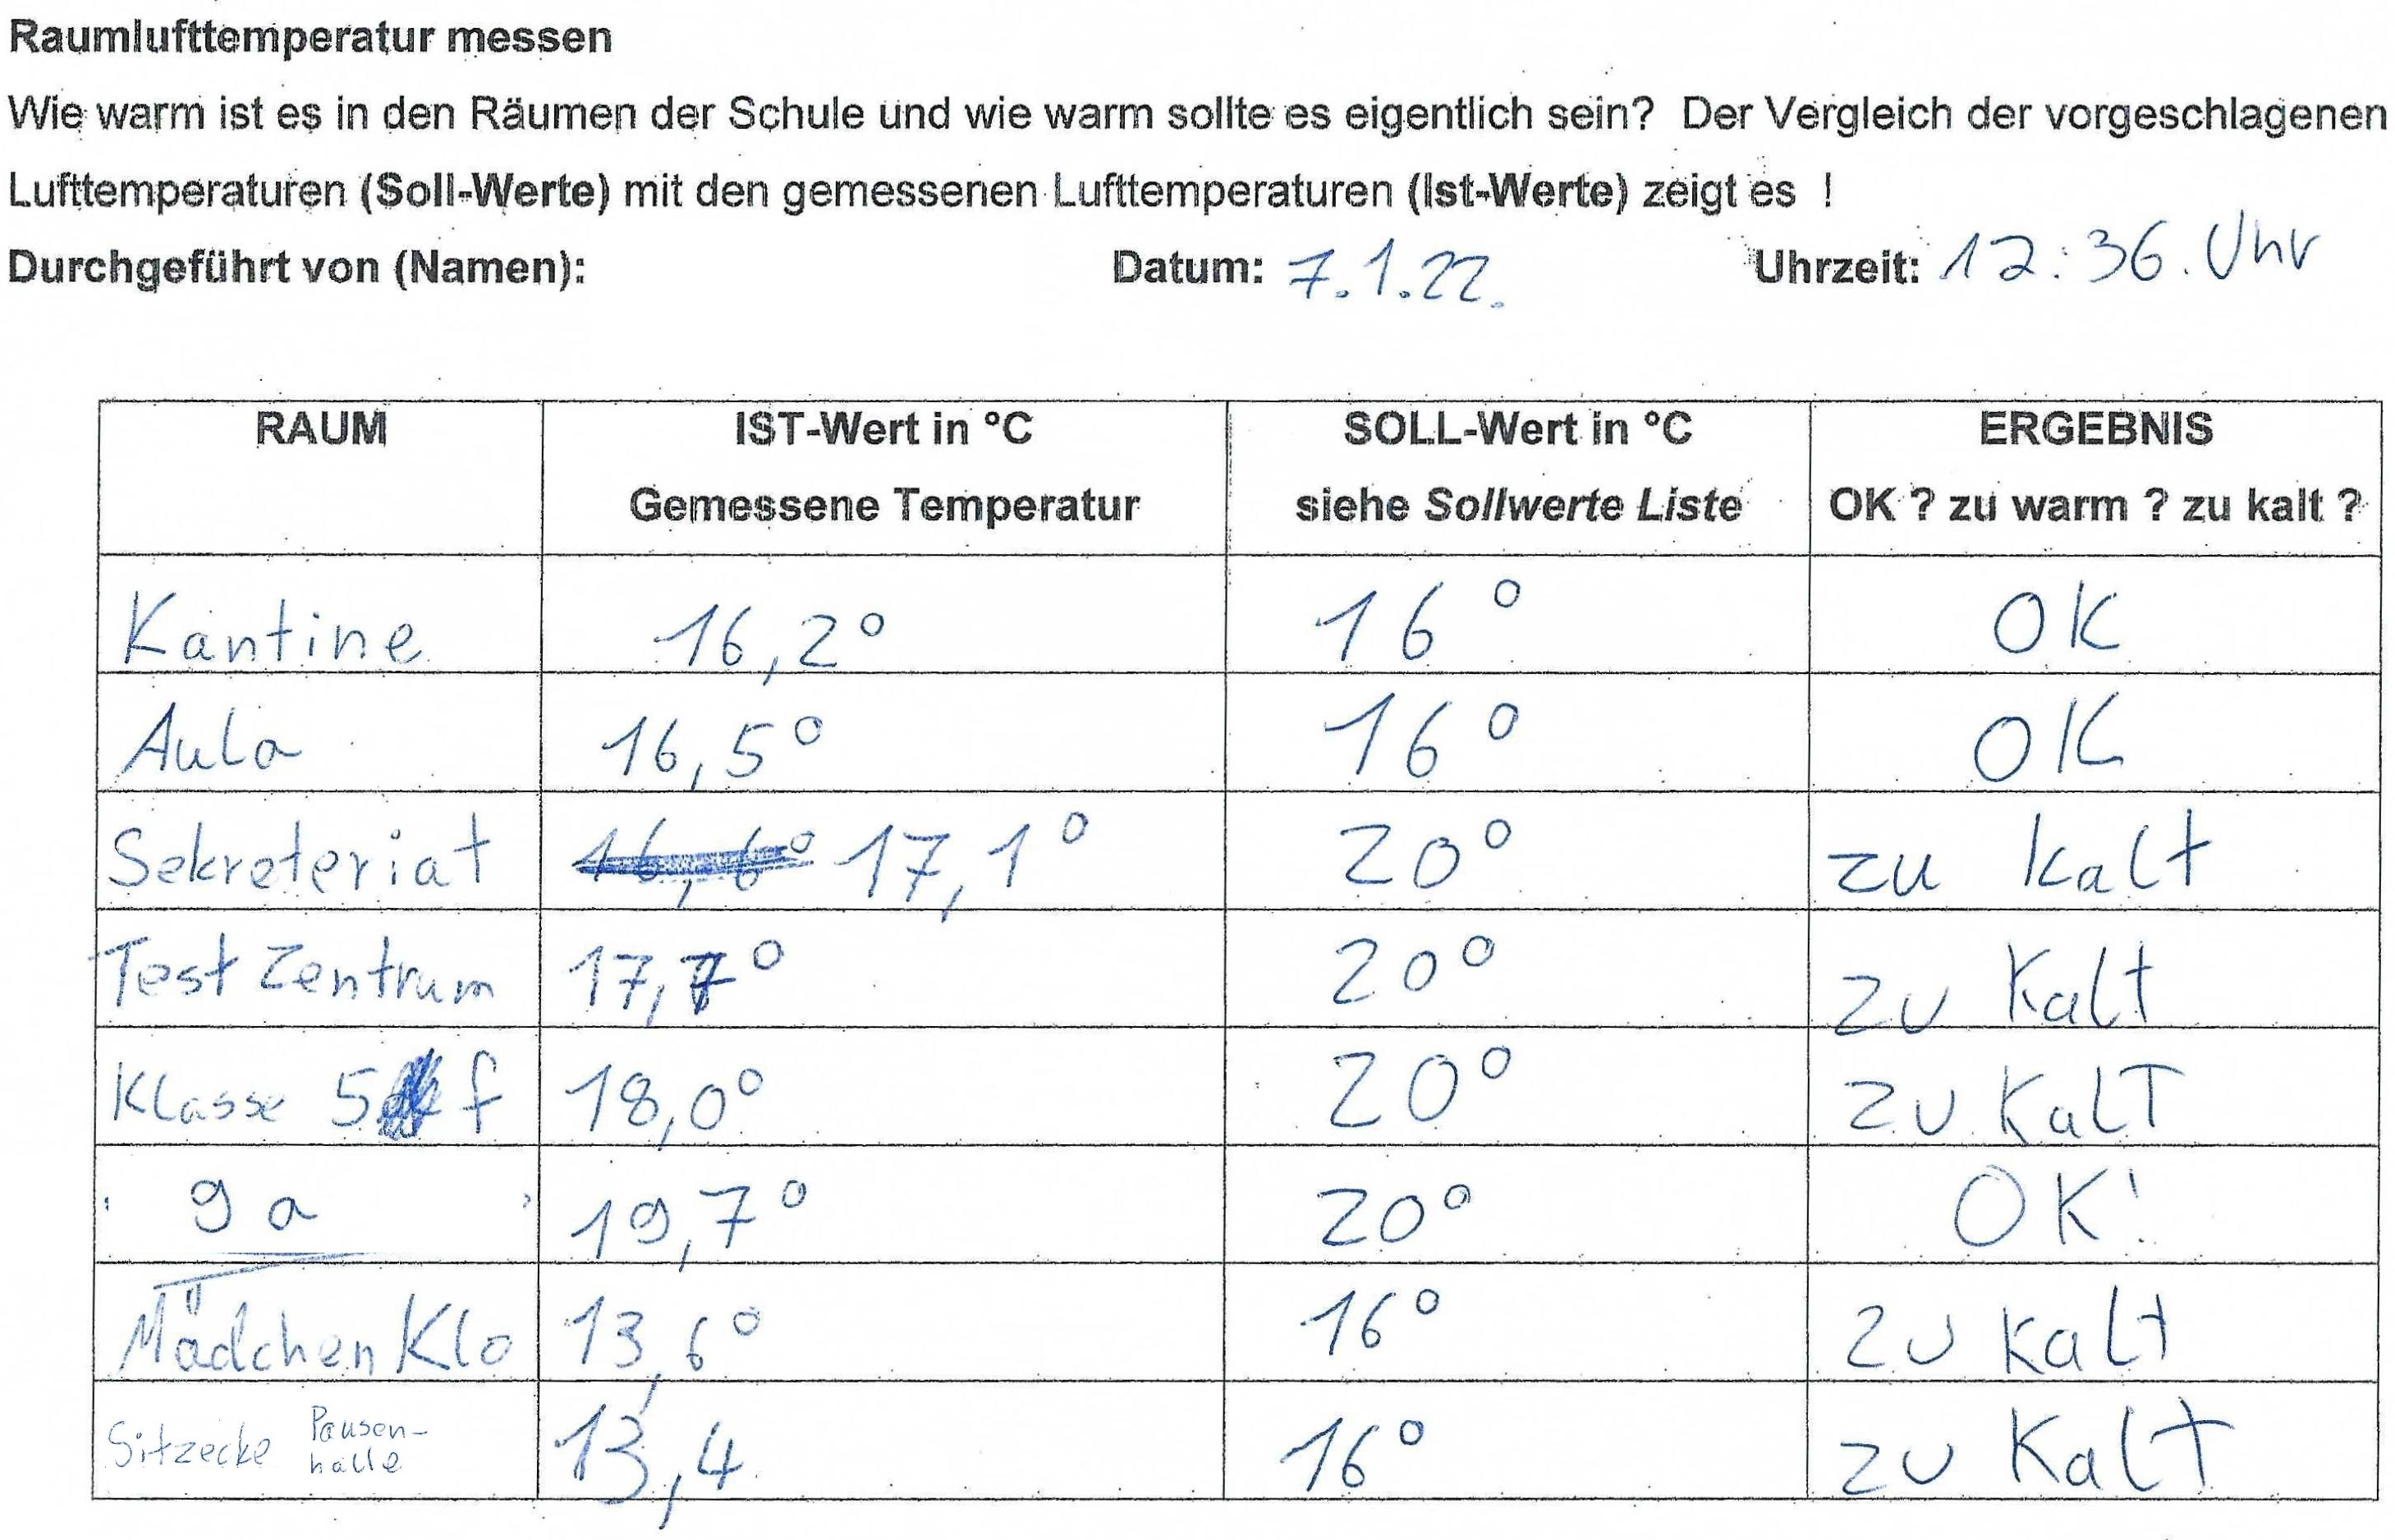 Raumlufttemperatur messen
Wie warm ist es in den Räumen der Schule und wie warm sollte es eigentlich sein? Der Vergleich der vorgeschlagenen
Lufttemperaturen (Soll-Werte) mit den gemessenen Lufttemperaturen (Ist-Werte) zeigt es !
Durchgeführt von (Namen): Datum: 7.1.22. Uhrzeit: 12:36. Uhr
RAUM IST-Wert in °C SOLL-Wert in °C ERGEBNIS
Gemessene Temperatur siehe Sollwerte Liste OK ? zu warm ? zu kalt ?
Kantine 16,2° 16° OK
Aula 16,5° 16° OK
Sekreteriat 16,6° 17,1° 20° zu kalt
Test Zentrum 17,7° 20° zu Kalt
Klasse 5 f 18,0° 20° zu KalT
9a 19,7° 20° OK!
Mädchen Klo 13,6° 16° zu kalt
Sitzecke Pausen-
halle 13,4 16° zu Kalt